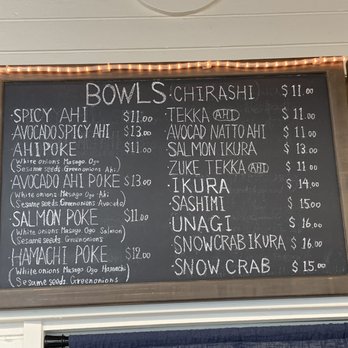 BOWLS
SPICY AHI $11.00
AVOCADO SPICY AHI $13.00
AHI POKE $11.00
(White onions Masago Ogo
Sesame seeds Green onions Ahi)
AVOCADO AHI POKE $13.00
(White onions Masago Ogo Ahi
Sesame seeds Green onions Avocado)
SALMON POKE $11.00
(White onions Masago Ogo Salmon
Sesame seeds Green onions)
HAMACHI POKE $12.00
(White onions Masago Ogo Hamachi
Sesame seeds Green onions)
·CHIRASHI $11.00
·TEKKA (AHI) $11.00
·AVOCAD NATTO AHI $11.00
·SALMON IKURA $13.00
·ZUKE TEKKA (AHI) $11.00
·IKURA $14.00
·SASHIMI $15.00
·UNAGI $16.00
·SNOWCRAB IKURA $16.00
·SNOW CRAB $15.00